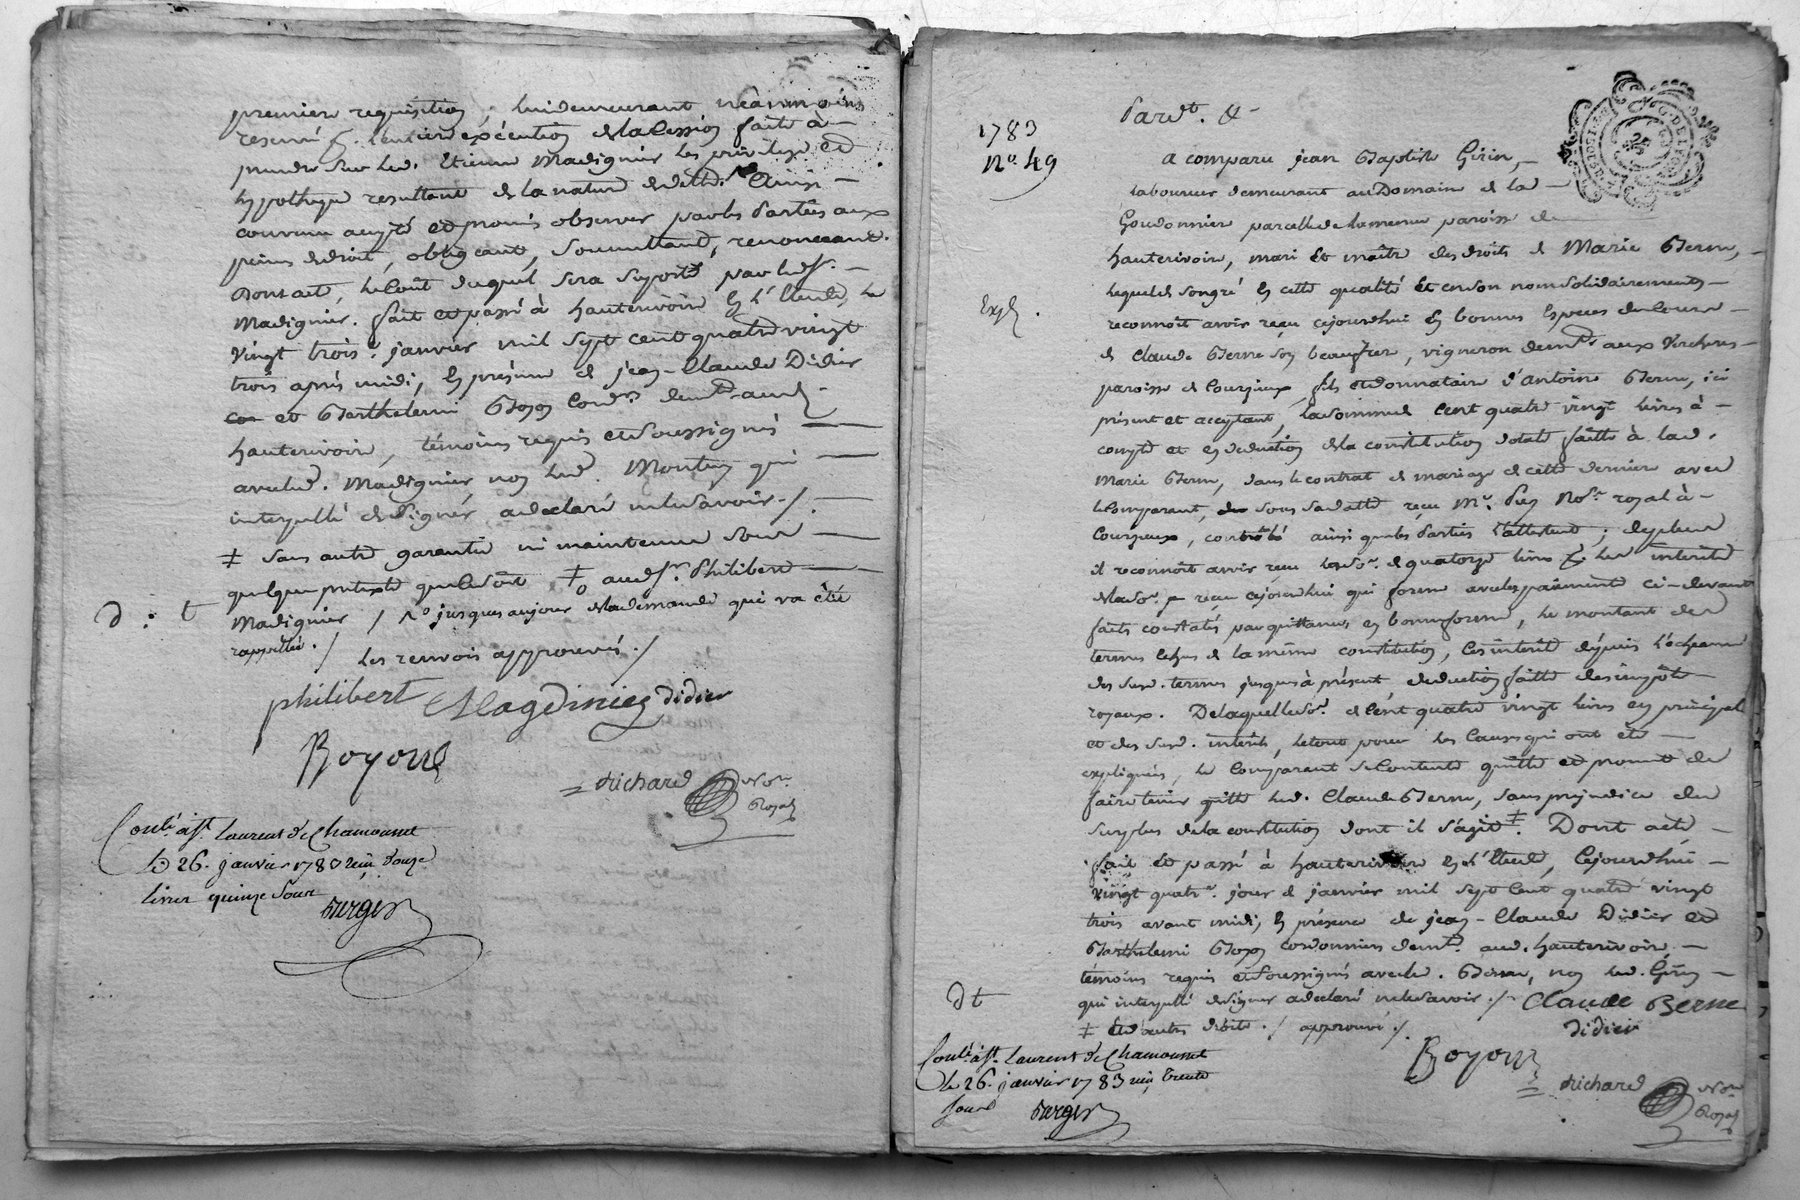 premiere requisition, lui demeurant néanmoins
reservé p. l'entiere exécution de la Cession faitte à
prendre sur led. Etienne Madignier les privilege et
hypotheque resultant de la nature de dette. Ainsi
convenu accepté et promis observer par les Parties aux
peines de droit, obligeant, soumettant, renonceant.
Dont acte, le Coût duquel sera suporté par led. Sr.
Madignier. fait et passé à hauterivoire En l'Etude, le
vingt trois e. janvier mil sept cent quatre vingt
trois après midi, En présence de jean-Claude Didier
et Barthelemi Boyon Cord.rs demt. aud.
hauterivoire, témoins requis et soussignés
avec led. Madignier non led. Montuy qui
interpellé de signer a declaré ne le savoir ./.
‡ sans autre garantie ni maintenue sous
quelque pretexte que ce soit ‡o aud. sr. Philibert
d : t
Madignier / No jusques aujour de la demande qui va être
rappellée ./ les renvois approuvés ./
philibert Magdinier didier
Boyon
Richard Nore.
Royal
Conlé. à St. Laurent de Chamousset
Le 26. janvier 1783 reçu douze
livres quinze sous
Berger
1783
No. 49
Pardt. &
A comparu jean Baptiste Girin,
laboureur demeurant au Domaine de la
Goudonnier parcelle de la meme paroisse de
hauterivoire, mari Et maître des droits de Marie Berne,
lequel de son gré En cette qualité Et en son nom solidairement
Exp.
reconnoit avoir reçu cejourdhui En bonnes Especes de Cours
de Claude Berne son beaufrere, vigneron demt. aux Verchere
paroisse de Courzieux, fils et donnataire d'Antoine Berne, ici
présent et acceptant, la somme de Cent quatre vingt livres à
compte et En deduction de la constitution dotale faitte à lad.
Marie Berne, dans le contrat de mariage de cette derniere avec
le Comparant, sous sa datte reçu Me. Nore. royal à
Courzieux, controlé ainsi que les Parties l'attestent ; de plus
il reconnoit avoir reçu la so. de quatorze livres p. les interets
de la so. reçue cejourdhui qui forme avec les paiements ci-devant
faits constatés par quittances En bonne forme, le montant des
termes Echus de la même constitution, les interêts depuis l'échéance
des susd. termes jusques à présent, deduction faitte des impôts
royaux. De laquelle so. de Cent quatre vingt livres en principal
et des susd. interêts, le tout pour les Causes qui ont été
expliquées, le Comparant se Contente quitte et promet de
faire tenir quitte led. Claude Berne, sans prejudice du
surplus de la constitution dont il s'agit ‡. Dont acte
fait Et passé à hauterivoire En l'Etude, Cejourdhui
vingt quatre. jour de janvier mil sept Cent quatre vingt
trois avant midi, En présence de jean-Claude Didier et
Barthelemi Boyon cordonniers demt. aud. hauterivoire,
témoins requis et soussignés avec led. Berne, non led. Girin
dt
qui interpellé de signer a declaré ne le savoir ./. Claude Berne
‡ Et d'autres droits ./ approuvé ./. didier
Boyon
Richard Nore.
Royal
Conlé. à St. Laurent de Chamousset
le 26. janvier 1783 reçu trente
sous Berger